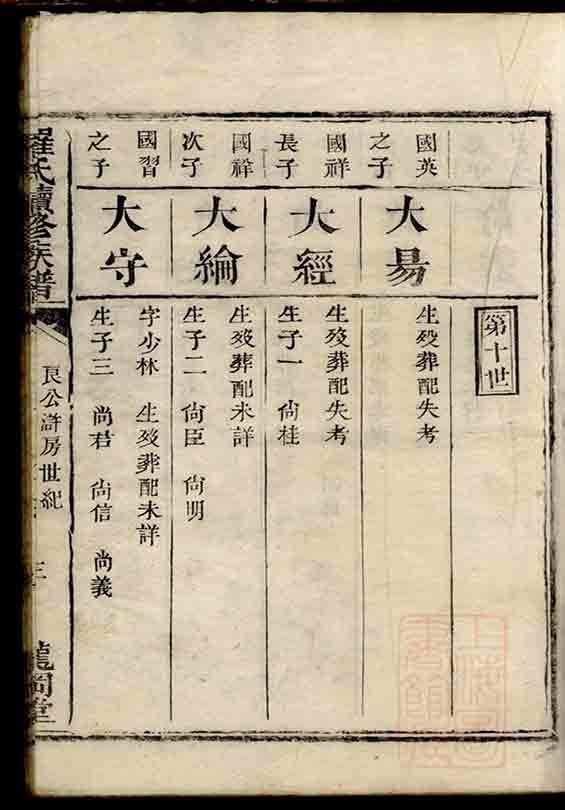 第十世
國英
之子
大易
生歿葬配失考
國祥
長子
大經
生歿葬配失考
生子一 尙桂
國祥
次子
大綸
生歿葬配未詳
生子二 尙臣 尙明
國習
之子
大守
字少林 生歿葬配未詳
生子三 尚君 尚信 尚義
羅氏續修族譜
艮公滸房世紀
三
龍岡堂